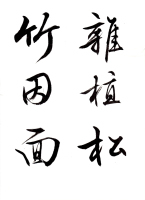 雜植松
竹因面